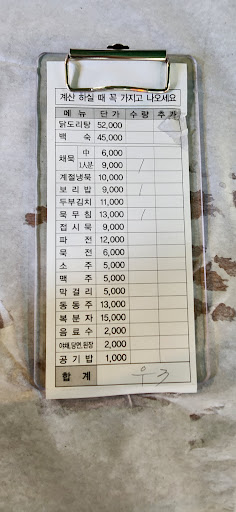 계산 하실 때 꼭 가지고 나오세요
메뉴 단가 수량 추가
닭도리탕 52,000
백숙 45,000
채묵 中 6,000
1人분 9,000 /
계절냉묵 10,000
보리밥 9,000 /
두부김치 11,000
묵무침 13,000 /
접시묵 9,000
파전 12,000
묵전 6,000
소주 5,000
맥주 5,000
막걸리 5,000
동동주 13,000
복분자 15,000
음료수 2,000
야채,당면,된장 2,000
공기밥 1,000
합계